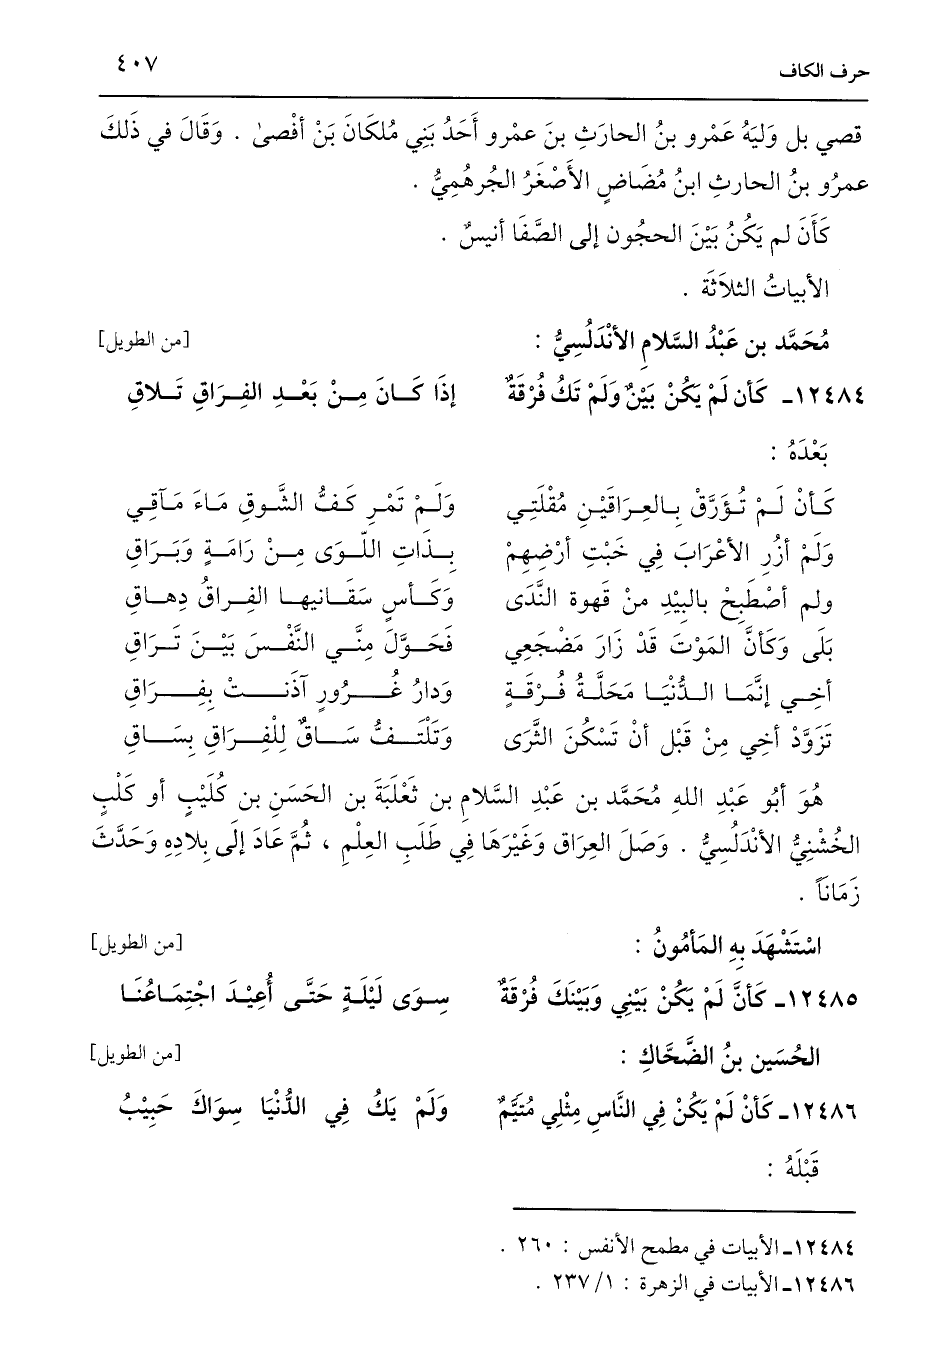 حرف الكاف ٤٠٧
قصي بل وَليَهُ عَمْرو بنُ الحارَثِ بنَ عمْرو أَحَدُ بَنِي مُلكَانَ بَنْ أفْصىٰ . وَقَالَ في ذَلكَ
عمرُو بنُ الحارثِ ابنُ مُضَاضٍ الأَصْغَرُ الجُرهُمِيُّ .
كَأَنَ لم يَكُنُ بَيْنَ الحجُون إلى الصَّفَا أنيسٌ .
الأبياتُ الثلاَثَة .
مُحَمَّد بن عَبْدُ السَّلامِ الأنْدَلُسِيُّ : [من الطويل]
١٢٤٨٤ـ كَأن لَمْ يَكُنْ بَيْنٌ وَلَمْ تَكُ فُرْقَةٌ إذَا كَــانَ مِــنْ بَعْــدِ الفِــرَاقِ تَــلاقِ
بَعْدَهُ :
كَـأنْ لَـمْ تُـؤَرَّقْ بـالعِـرَاقَيْـنِ مُقْلَتِـي وَلَـمْ تَمْـرِ كَـفُّ الشَّـوقِ مَـاءَ مَـآقِـي
وَلَمْ أزُرِ الأعْرَابَ فِي خَبْتِ أرْضِهِمْ بِــذَاتِ اللِّــوَى مِــنْ رَامَــةٍ وَبَــرَاقِ
ولم أصْطَبِحْ بالبِيْدِ منْ قهوة النَّدَى وَكَــأسٍ سَقَــانيهــا الفِــراقُ دِهــاقِ
بَلَى وَكَأنَّ المَوْتَ قَدْ زَارَ مَضْجَعِي فَحَــوَّلَ مِنِّــي النَّفْــسَ بَيْــنَ تَــرَاقِ
أخِــي إنَّمَــا الــدُّنْيَــا مَحَلَّــةُ فُــرْقَــةٍ وَدارُ غُــــرُورٍ آذَنــــتْ بِفِــــرَاقِ
تَزَوَّدْ أخِي مِنْ قَبْلِ أنْ تَسْكُنَ الثَّرَى وَتَلْتَــفُّ سَــاقٌ لِلْفِــرَاقِ بِسَــاقِ
هُوَ أبُو عَبْدِ اللهِ مُحَمَّد بن عَبْدِ السَّلامِ بن ثَعْلَبَةَ بن الحَسَنِ بن كُلَيْبٍ أو كَلْبٍ
الخُشْنِيُّ الأنْدَلُسِيُّ . وَصَلَ العِرَاق وَغَيْرَهَا فِي طَلَبِ العِلْمِ ، ثُمَّ عَادَ إلَى بِلادِهِ وَحَدَّثَ
زَمَاناً .
اسْتَشْهَدَ بِهِ المَأمُونُ : [من الطويل]
١٢٤٨٥ـ كَأنَّ لَمْ يَكُنْ بَيْنِي وَبَيْنَكَ فُرْقَةٌ سِـوَى لَيْلَةٍ حَتَّـى أُعِيْـدَ اجْتِمَـاعُنَـا
الحُسَين بنُ الضَّحَّاكِ : [من الطويل]
١٢٤٨٦ـ كَأنْ لَمْ يَكُنْ فِي النَّاسِ مِثْلِي مُتَيَّمٌ وَلَمْ يَكُ فِي الدُّنْيَا سِوَاكَ حَبِيْبُ
قَبْلَهُ :
١٢٤٨٤ـ الأبيات في مطمح الأنفس : ٢٦٠ .
١٢٤٨٦ـ الأبيات في الزهرة : ١/ ٢٣٧ .